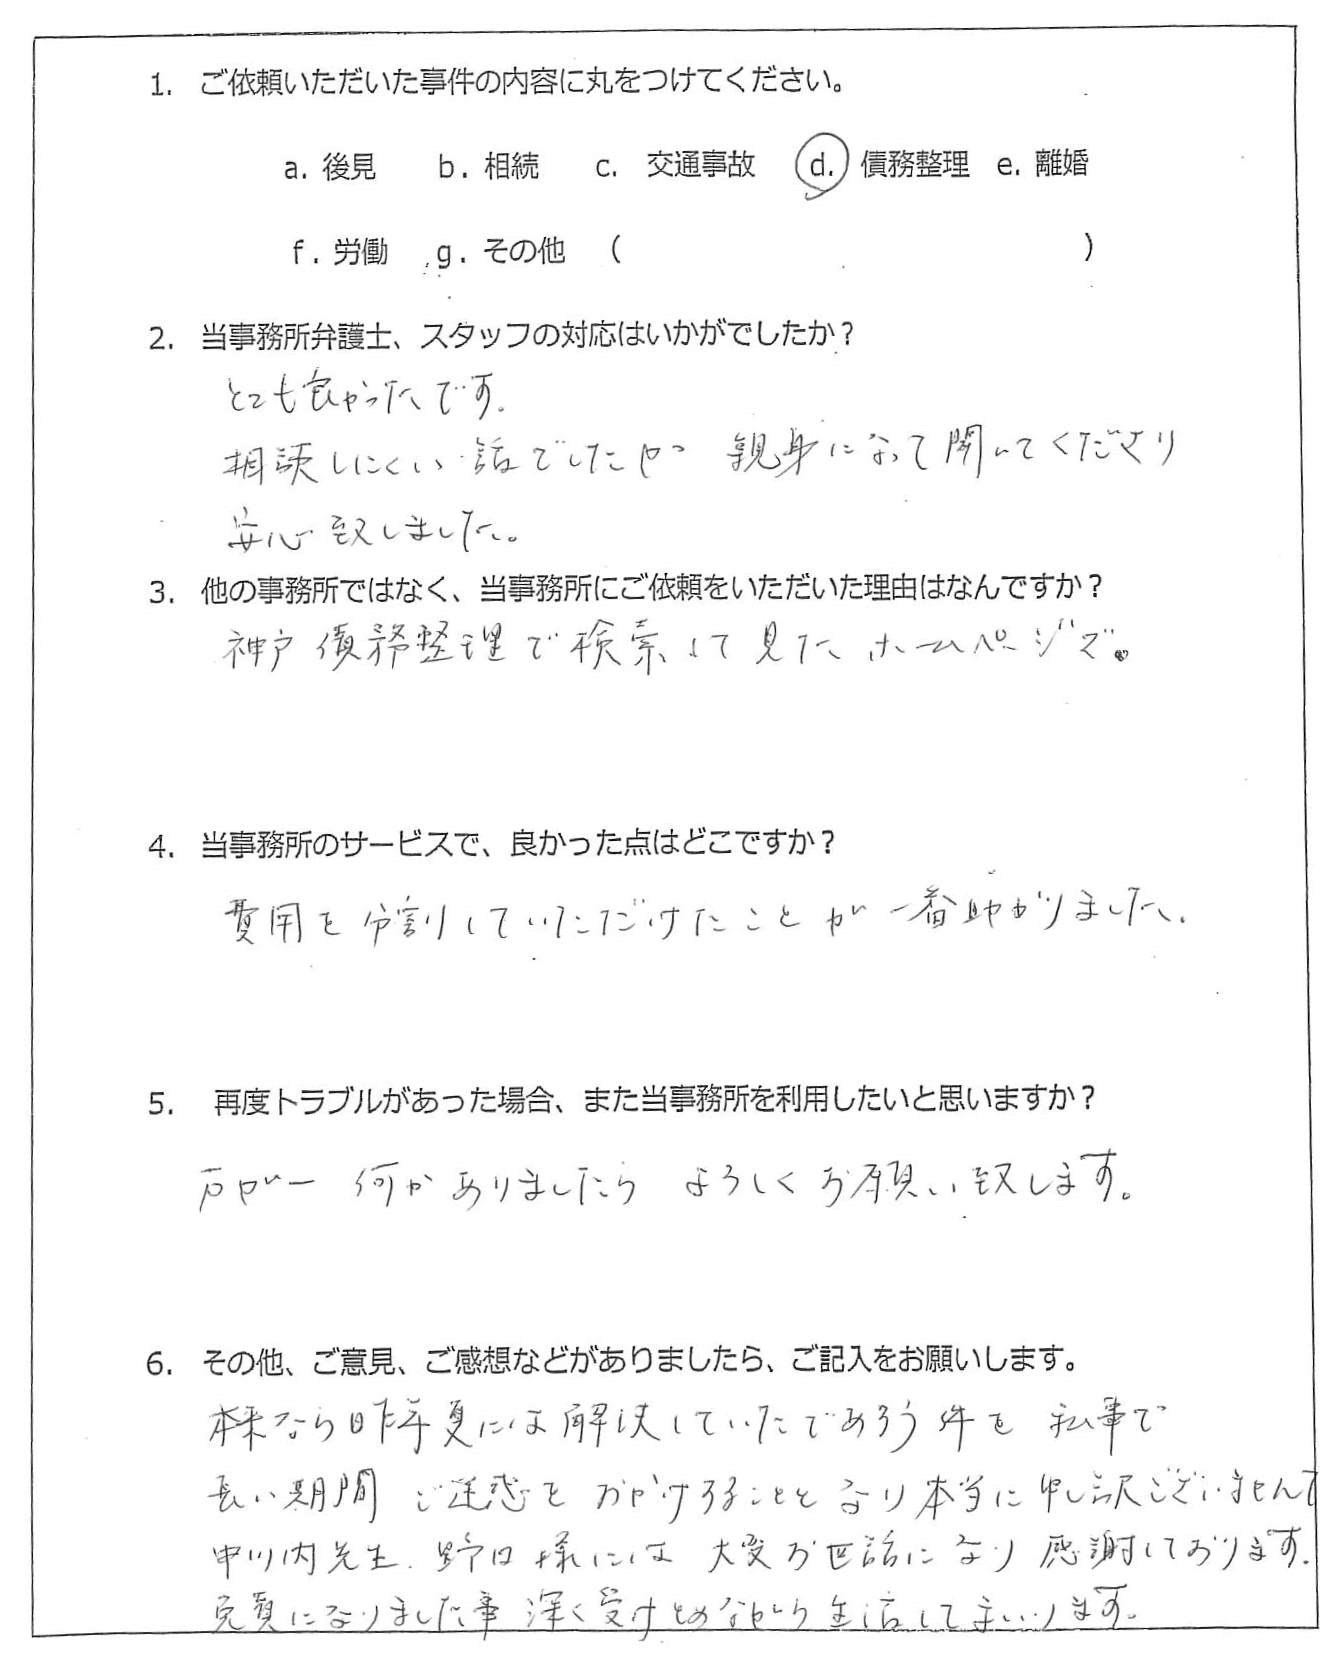 1. ご依頼いただいた事件の内容に丸をつけてください。
a. 後見 b. 相続 c. 交通事故 d. 債務整理 e. 離婚
f. 労働 g. その他 ( )
2. 当事務所弁護士、スタッフの対応はいかがでしたか？
とても良かったです.
相談しにくい話でしたが 親身になって聞いてくださり
安心致しました。
3. 他の事務所ではなく、当事務所にご依頼をいただいた理由はなんですか？
神戸 債務整理で検索して見たホームページで。
4. 当事務所のサービスで、良かった点はどこですか？
費用を分割していただけたことが一番助かりました.
5. 再度トラブルがあった場合、また当事務所を利用したいと思いますか？
万が一 何かありましたら よろしくお願い致します。
6. その他、ご意見、ご感想などがありましたら、ご記入をお願いします。
本来なら昨年夏には解決していたであろう件を 私事で
長い期間 ご迷惑をおかけすることとなり本当に申し訳ございませんで
中川内先生. 野口様には 大変お世話になり 感謝しております.
免責になりました事 深く受けとめながら生活してまいります。